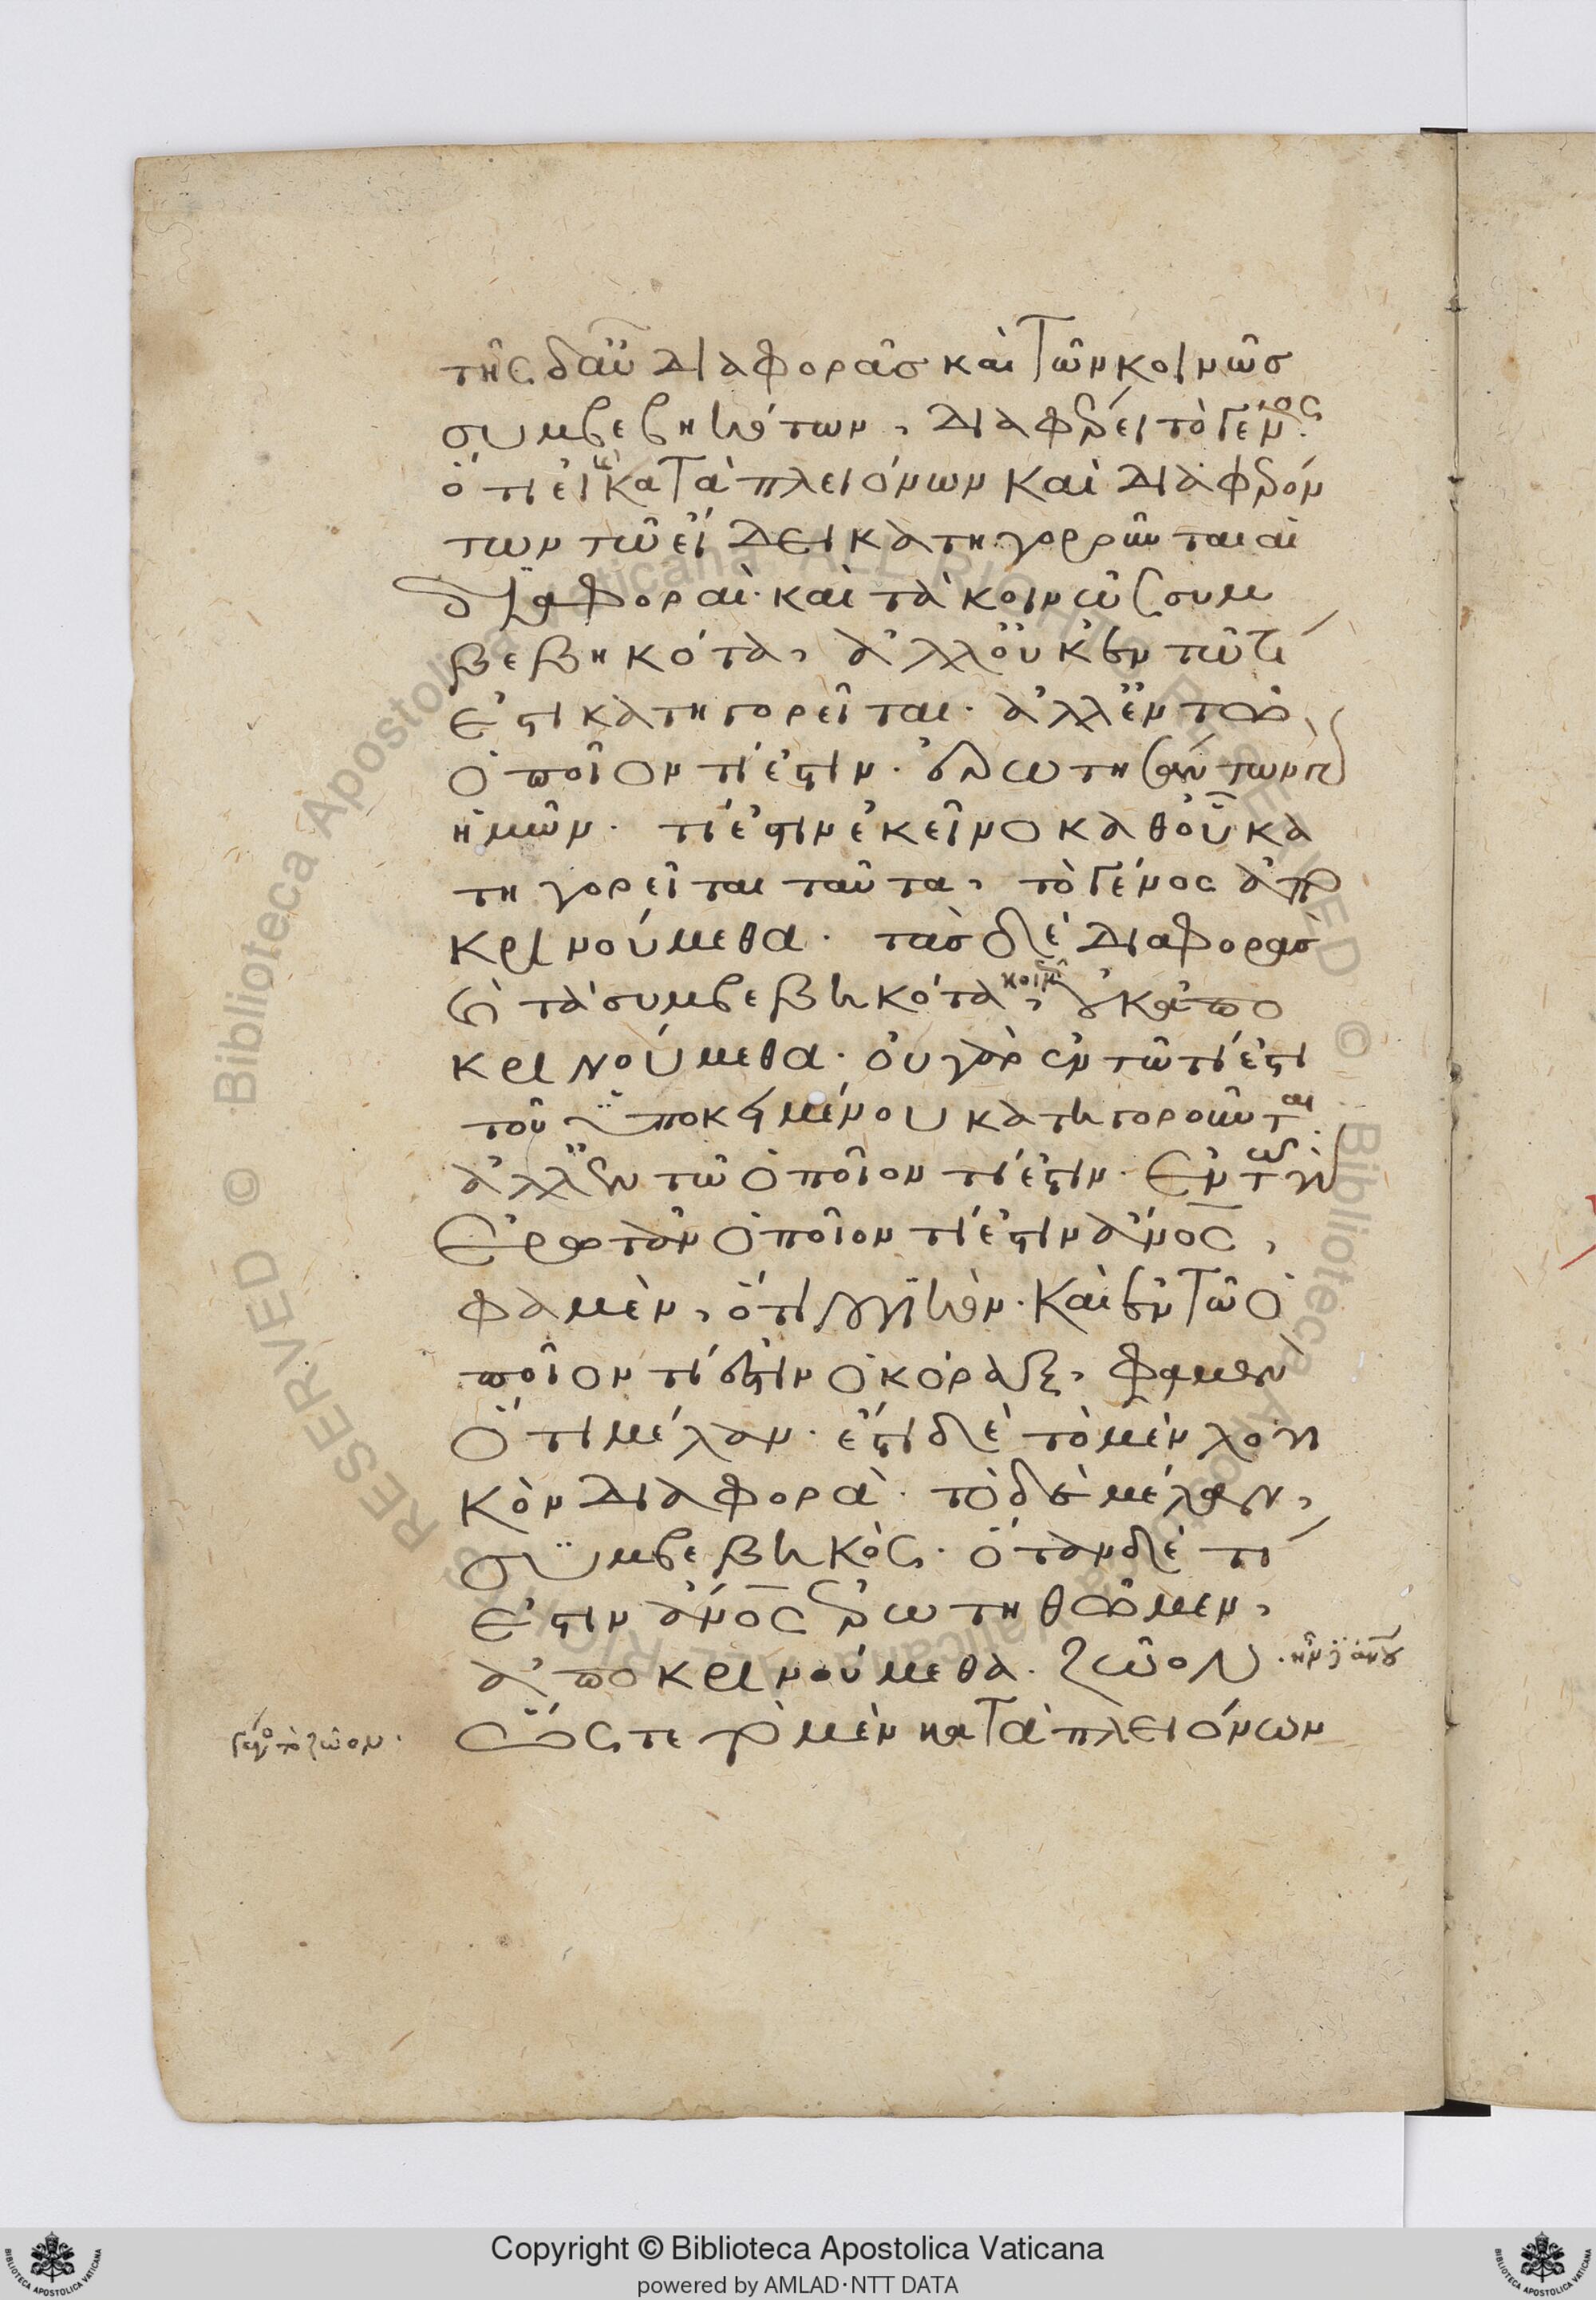 τῆς δ' αὖ διαφορᾶς καὶ τῶν κοινῶς
συμβεβηκότων, διαφέρει τὸ γένος·
ὅτι εἰ καὶ κατὰ πλειόνων καὶ διαφερόν
των τῷ εἴδει κατηγοροῦνται αἱ
διαφοραὶ· καὶ τὰ κοινῶς συμ
βεβηκότα, ἀλλ' οὐκ ἐν τῷ τί
ἐστι κατηγορεῖται· ἀλλ' ἐν τῶ
ὁποῖον τί ἐστιν· ἐρωτησάντων γ(ὰρ)
ἡμῶν· τί ἐστιν ἐκεῖνο καθ' οὗ κα
τηγορεῖται ταῦτα, τὸ γένος ἀπο
κρινούμεθα· τὰς δὲ διαφορὰς
καὶ τὰ συμβεβηκότα κοινῶς, οὐκ ἀπο
κρινούμεθα· οὐ γὰρ ἐν τῷ τί ἐστι
τοῦ ὑποκειμένου κατηγοροῦνται·
ἀλλ' ἐν τῷ ὁποῖον τί ἐστιν· ἐν τῷ γὰρ
ἐρωτᾶν ὁποῖον τί ἐστιν ἄνος,
φαμὲν, ὅτι λογικὸν· καὶ ἐν τῶ ὁ
ποῖον τί ἐστιν ὁ κόραξ, φαμὲν
ὅτι μέλαν· ἔστι δὲ τὸ μὲν λογι
κὸν διαφορὰ· τὸ δὲ μέλαν,
συμβεβηκὸς· ὅταν δὲ τί
ἐστιν ἄνος ἐρωτηθῶμεν,
ἀποκρινούμεθα· ζῶον· ἦν γὰρ ἀνου
γένος τὸ ζῶον·
ὥστε τὸ μὲν κατὰ πλειόνων